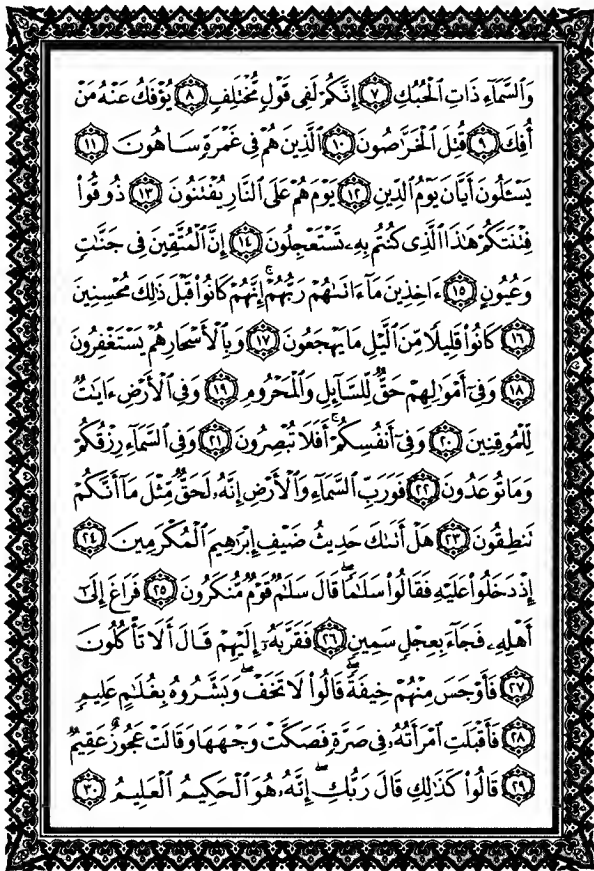 وَٱلسَّمَآءِ ذَاتِ ٱلۡحُبُكِ ٧ إِنَّكُمۡ لَفِي قَوۡلٖ مُّخۡتَلِفٖ ٨ يُؤۡفَكُ عَنۡهُ مَنۡ
أُفِكَ ٩ قُتِلَ ٱلۡخَرَّٰصُونَ ١٠ ٱلَّذِينَ هُمۡ فِي غَمۡرَةٖ سَاهُونَ ١١
يَسۡـَٔلُونَ أَيَّانَ يَوۡمُ ٱلدِّينِ ١٢ يَوۡمَ هُمۡ عَلَى ٱلنَّارِ يُفۡتَنُونَ ١٣ ذُوقُواْ
فِتۡنَتَكُمۡ هَٰذَا ٱلَّذِي كُنتُم بِهِۦ تَسۡتَعۡجِلُونَ ١٤ إِنَّ ٱلۡمُتَّقِينَ فِي جَنَّٰتٖ
وَعُيُونٍ ١٥ ءَاخِذِينَ مَآ ءَاتَىٰهُمۡ رَبُّهُمۡۚ إِنَّهُمۡ كَانُواْ قَبۡلَ ذَٰلِكَ مُحۡسِنِينَ
١٦ كَانُواْ قَلِيلٗا مِّنَ ٱلَّيۡلِ مَا يَهۡجَعُونَ ١٧ وَبِٱلۡأَسۡحَارِ هُمۡ يَسۡتَغۡفِرُونَ
١٨ وَفِيٓ أَمۡوَٰلِهِمۡ حَقّٞ لِّلسَّآئِلِ وَٱلۡمَحۡرُومِ ١٩ وَفِي ٱلۡأَرۡضِ ءَايَٰتٞ
لِّلۡمُوقِنِينَ ٢٠ وَفِيٓ أَنفُسِكُمۡۚ أَفَلَا تُبۡصِرُونَ ٢١ وَفِي ٱلسَّمَآءِ رِزۡقُكُمۡ
وَمَا تُوعَدُونَ ٢٢ فَوَرَبِّ ٱلسَّمَآءِ وَٱلۡأَرۡضِ إِنَّهُۥ لَحَقّٞ مِّثۡلَ مَآ أَنَّكُمۡ
تَنطِقُونَ ٢٣ هَلۡ أَتَىٰكَ حَدِيثُ ضَيۡفِ إِبۡرَٰهِيمَ ٱلۡمُكۡرَمِينَ ٢٤
إِذۡ دَخَلُواْ عَلَيۡهِ فَقَالُواْ سَلَٰمٗاۖ قَالَ سَلَٰمٞ قَوۡمٞ مُّنكَرُونَ ٢٥ فَرَاغَ إِلَىٰٓ
أَهۡلِهِۦ فَجَآءَ بِعِجۡلٖ سَمِينٖ ٢٦ فَقَرَّبَهُۥٓ إِلَيۡهِمۡ قَالَ أَلَا تَأۡكُلُونَ
٢٧ فَأَوۡجَسَ مِنۡهُمۡ خِيفَةٗۖ قَالُواْ لَا تَخَفۡۖ وَبَشَّرُوهُ بِغُلَٰمٍ عَلِيمٖ
٢٨ فَأَقۡبَلَتِ ٱمۡرَأَتُهُۥ فِي صَرَّةٖ فَصَكَّتۡ وَجۡهَهَا وَقَالَتۡ عَجُوزٌ عَقِيمٞ
٢٩ قَالُواْ كَذَٰلِكِ قَالَ رَبُّكِۖ إِنَّهُۥ هُوَ ٱلۡحَكِيمُ ٱلۡعَلِيمُ ٣٠